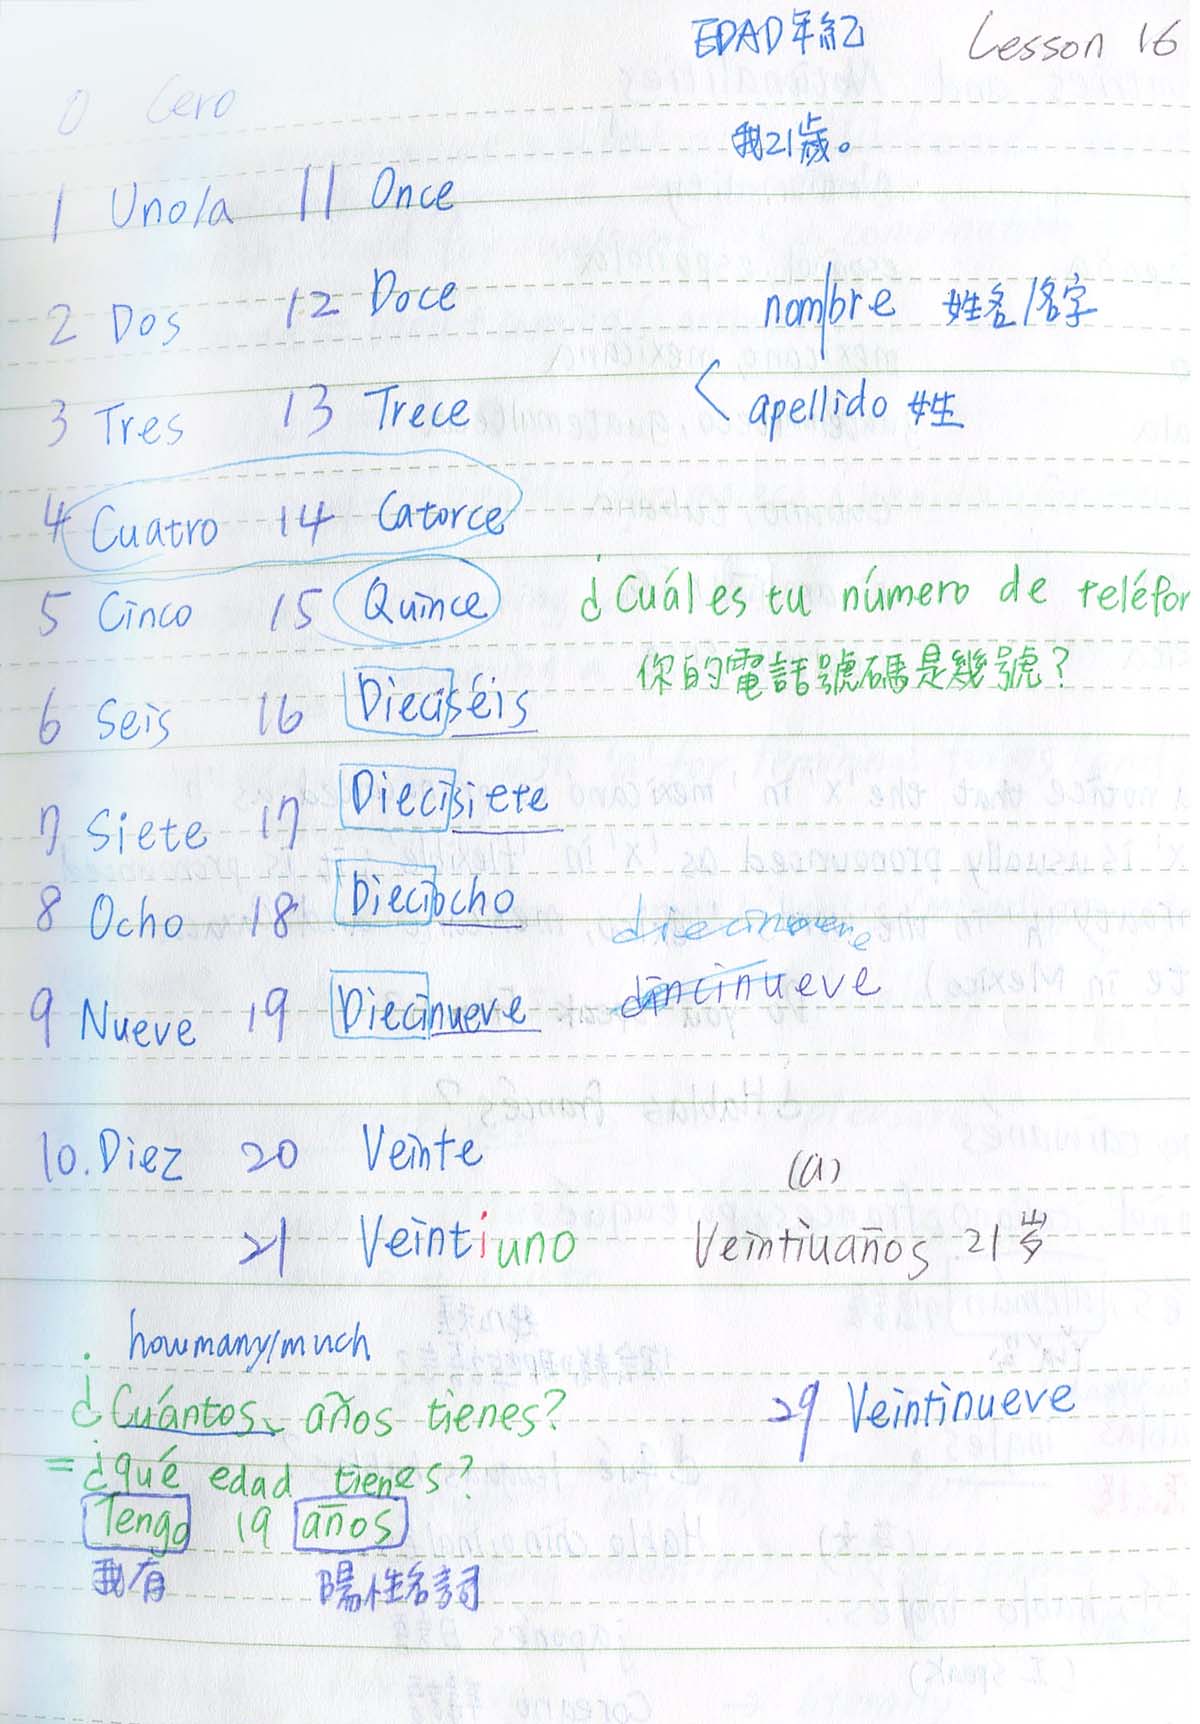 EDAD 年紀 Lesson 16
0 Cero
我21歲。
1 Uno/a 11 Once
2 Dos 12 Doce
nombre 姓名/名字
3 Tres 13 Trece
apellido 姓
4 Cuatro 14 Catorce
5 Cinco 15 Quince
¿Cuál es tu número de teléfon
你的電話號碼是幾號?
6 Seis 16 Dieciséis
7 Siete 17 Diecisiete
8 Ocho 18 Dieciocho
9 Nueve 19 Diecinueve
10. Diez 20 Veinte
(a)
21 Veintiuno Veintiuaños 21岁
how many/much
¿Cuántos años tienes?
29 Veintinueve
= ¿qué edad tienes?
Tengo 19 años
我有 陽性名詞